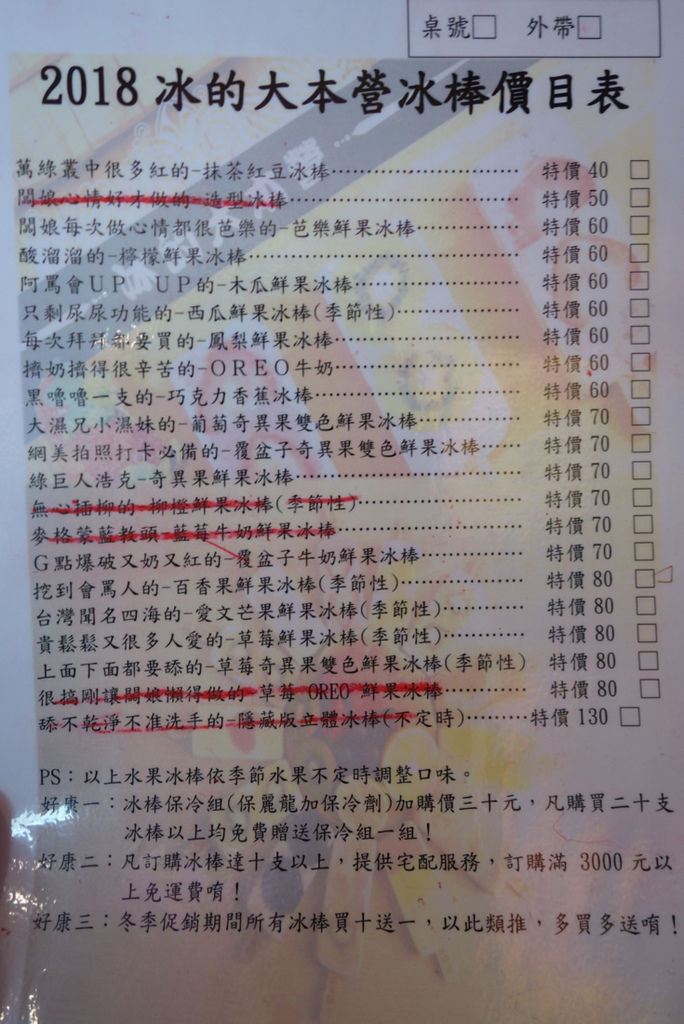 桌號□ 外帶□
2018 冰的大本營冰棒價目表
萬綠叢中很多紅的-抹茶紅豆冰棒………………………… 特價 40 □
闆娘心情好才做的-造型冰棒……………………………… 特價 50 □
闆娘每次做心情都很芭樂的-芭樂鮮果冰棒…………… 特價 60 □
酸溜溜的-檸檬鮮果冰棒…………………………………… 特價 60 □
阿罵會UP UP的-木瓜鮮果冰棒……………………… 特價 60 □
只剩尿尿功能的-西瓜鮮果冰棒(季節性)……………… 特價 60 □
每次拜拜都要買的-鳳梨鮮果冰棒……………………… 特價 60 □
擠奶擠得很辛苦的-OREO牛奶……………………… 特價 60 □
黑嚕嚕一支的-巧克力香蕉冰棒………………………… 特價 60 □
大濕兄小濕妹的-葡萄奇異果雙色鮮果冰棒…………… 特價 70 □
網美拍照打卡必備的-覆盆子奇異果雙色鮮果冰棒…… 特價 70 □
綠巨人浩克-奇異果鮮果冰棒…………………………… 特價 70 □
無心插柳的-柳橙鮮果冰棒(季節性)…………………… 特價 70 □
麥格蒙藍教頭-藍莓牛奶鮮果冰棒……………………… 特價 70 □
G點爆破又奶又紅的-覆盆子牛奶鮮果冰棒…………… 特價 70 □
挖到會罵人的-百香果鮮果冰棒(季節性)……………… 特價 80 □
台灣聞名四海的-愛文芒果鮮果冰棒(季節性)………… 特價 80 □
貴鬆鬆又很多人愛的-草莓鮮果冰棒(季節性)………… 特價 80 □
上面下面都要舔的-草莓奇異果雙色鮮果冰棒(季節性) 特價 80 □
很搞剛讓闆娘懶得做的-草莓 OREO 鮮果冰棒………… 特價 80 □
舔不乾淨不准洗手的-隱藏版立體冰棒(不定時)………特價 130 □
PS：以上水果冰棒依季節水果不定時調整口味。
好康一：冰棒保冷組(保麗龍加保冷劑)加購價三十元，凡購買二十支
冰棒以上均免費贈送保冷組一組！
好康二：凡訂購冰棒達十支以上，提供宅配服務，訂購滿 3000 元以
上免運費唷！
好康三：冬季促銷期間所有冰棒買十送一，以此類推，多買多送唷！